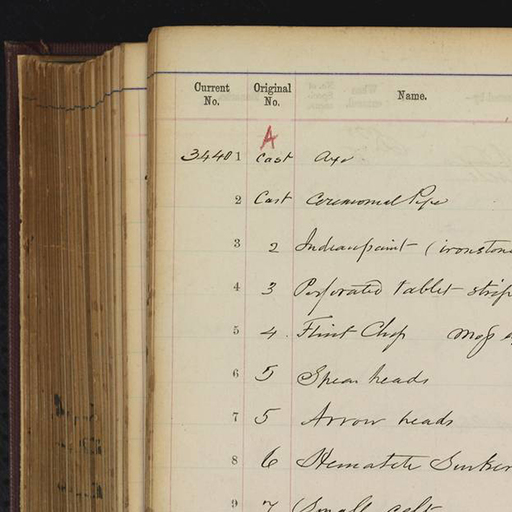 Current No. Original No. Name.
A
34401 Cast Axe
2 Cast Ceremonial Pipe
3 2 Indian paint (ironstone
4 3 Perforated tablet
5 4. Flint Chip
6 5 Spear heads
7 5 Arrow heads
8 6 Hematite Sinker
9 7 Small celt